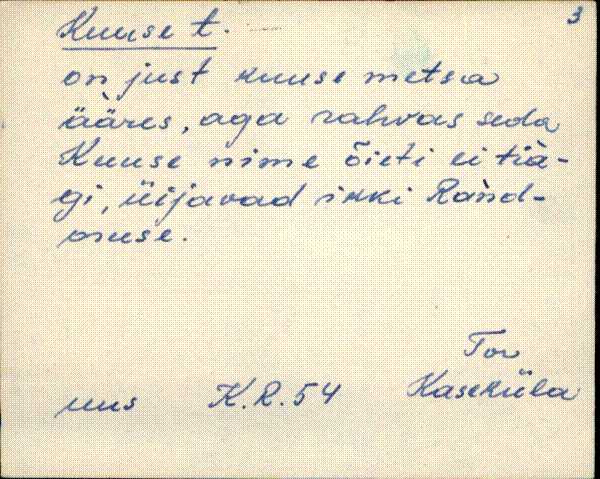 3
Kuuse t.
on just kuuse metsa
ääres, aga rahvas seda
Kuuse nime õieti ei tiä-
gi, üijavad ikki Ränd-
muse.
Tor
Kaseküla
uus K.R.54